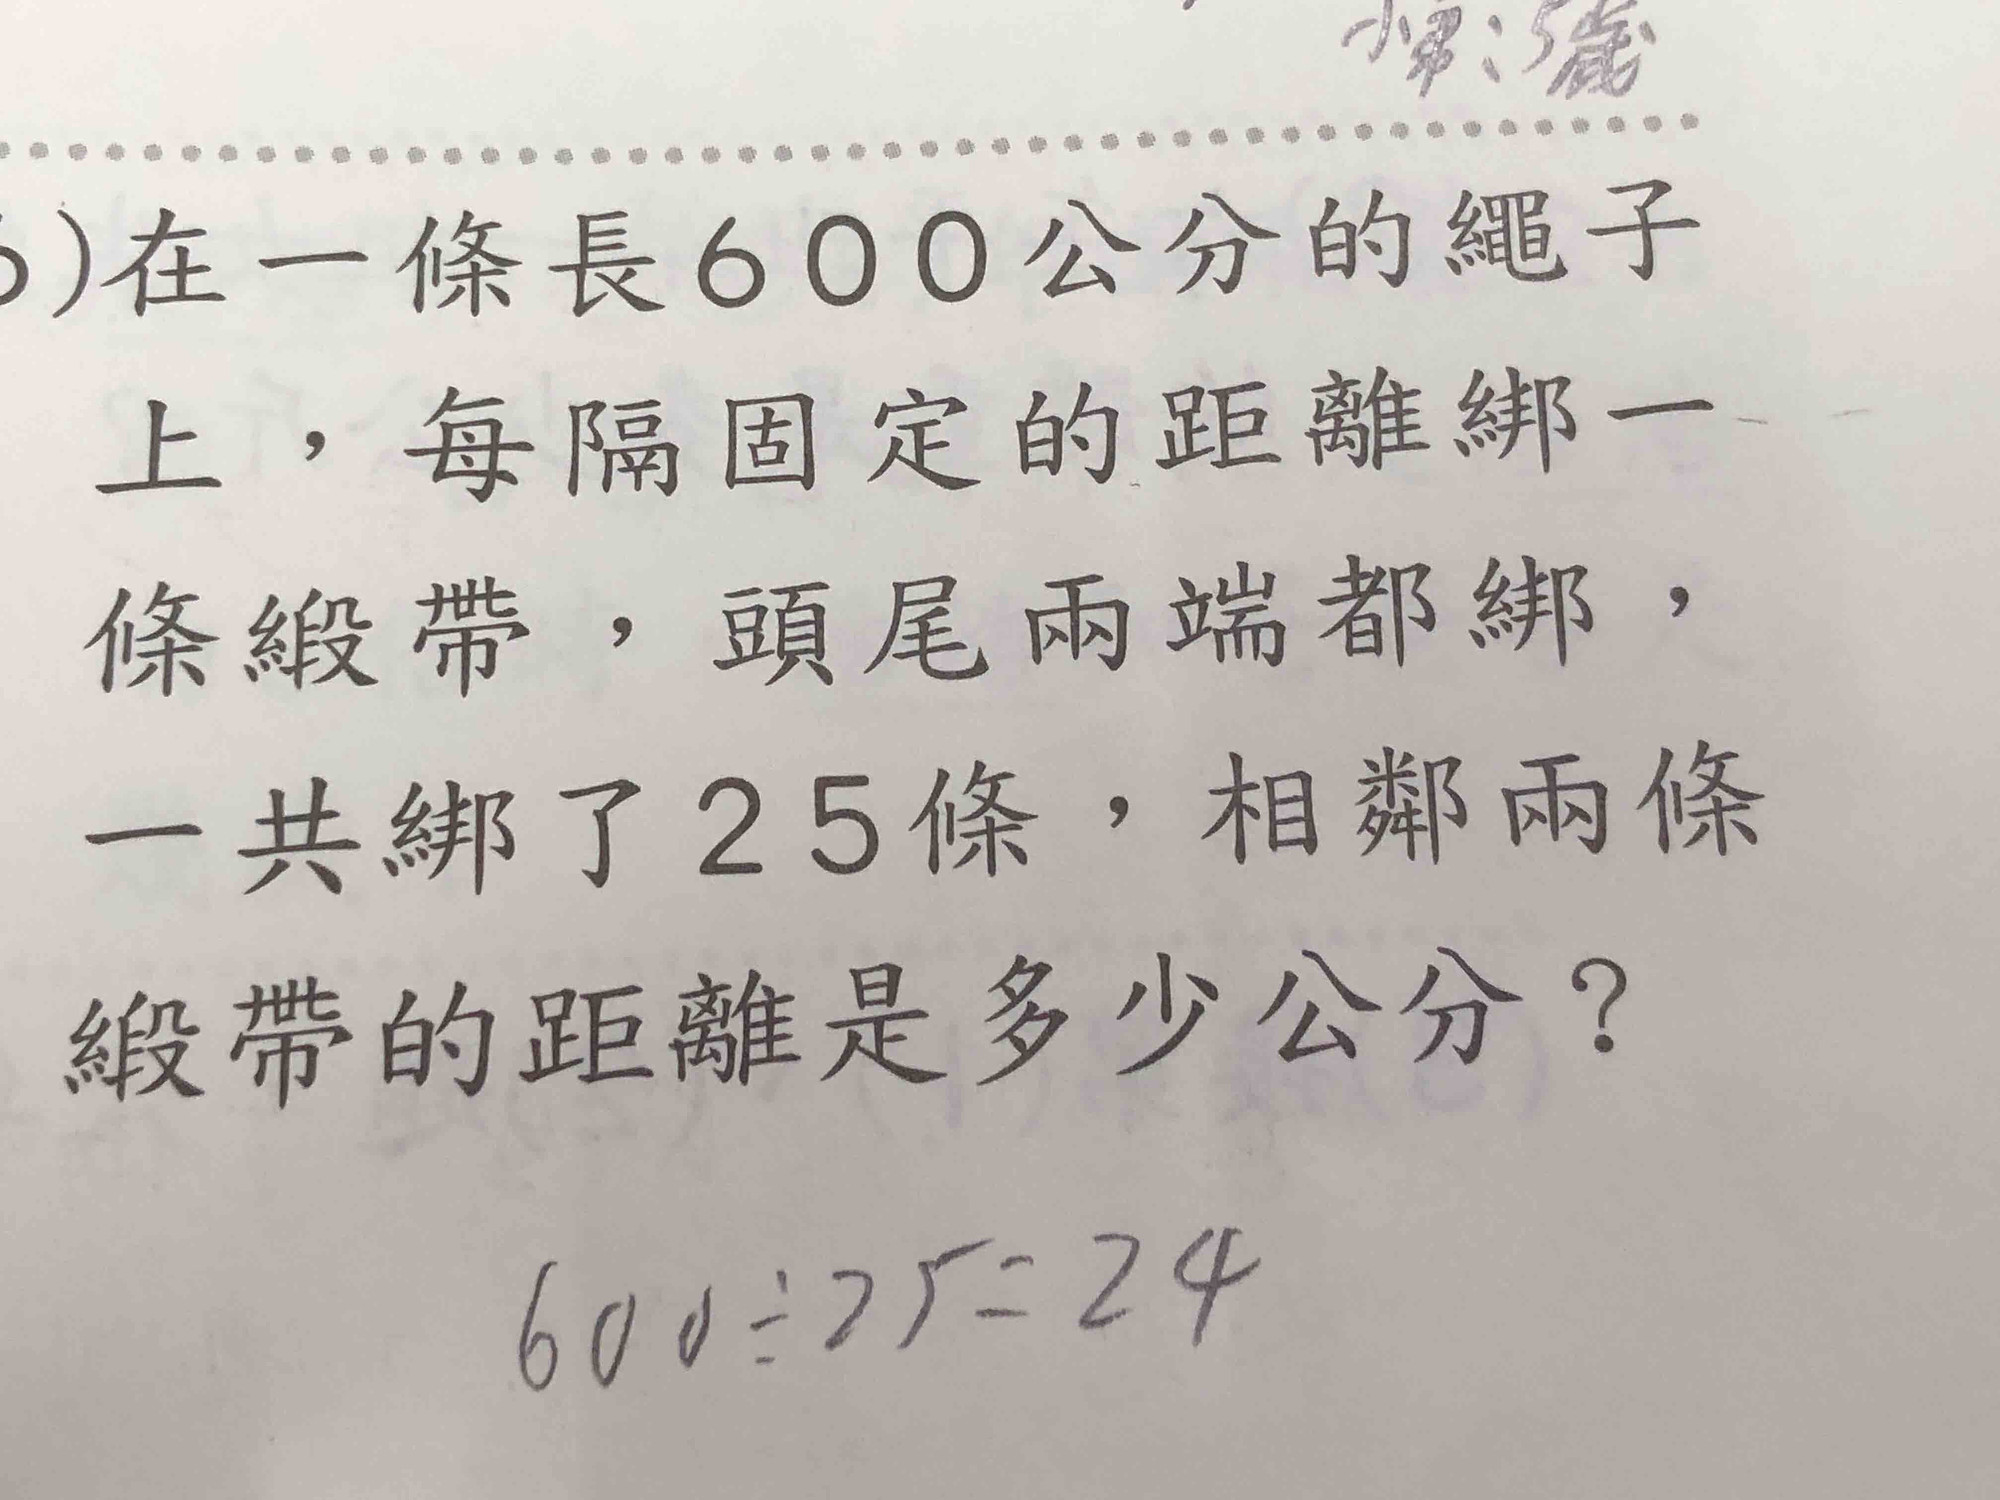 小弟:5歲
6)在一條長600公分的繩子
上，每隔固定的距離綁一
條緞帶，頭尾兩端都綁，
一共綁了25條，相鄰兩條
緞帶的距離是多少公分？
600÷25=24